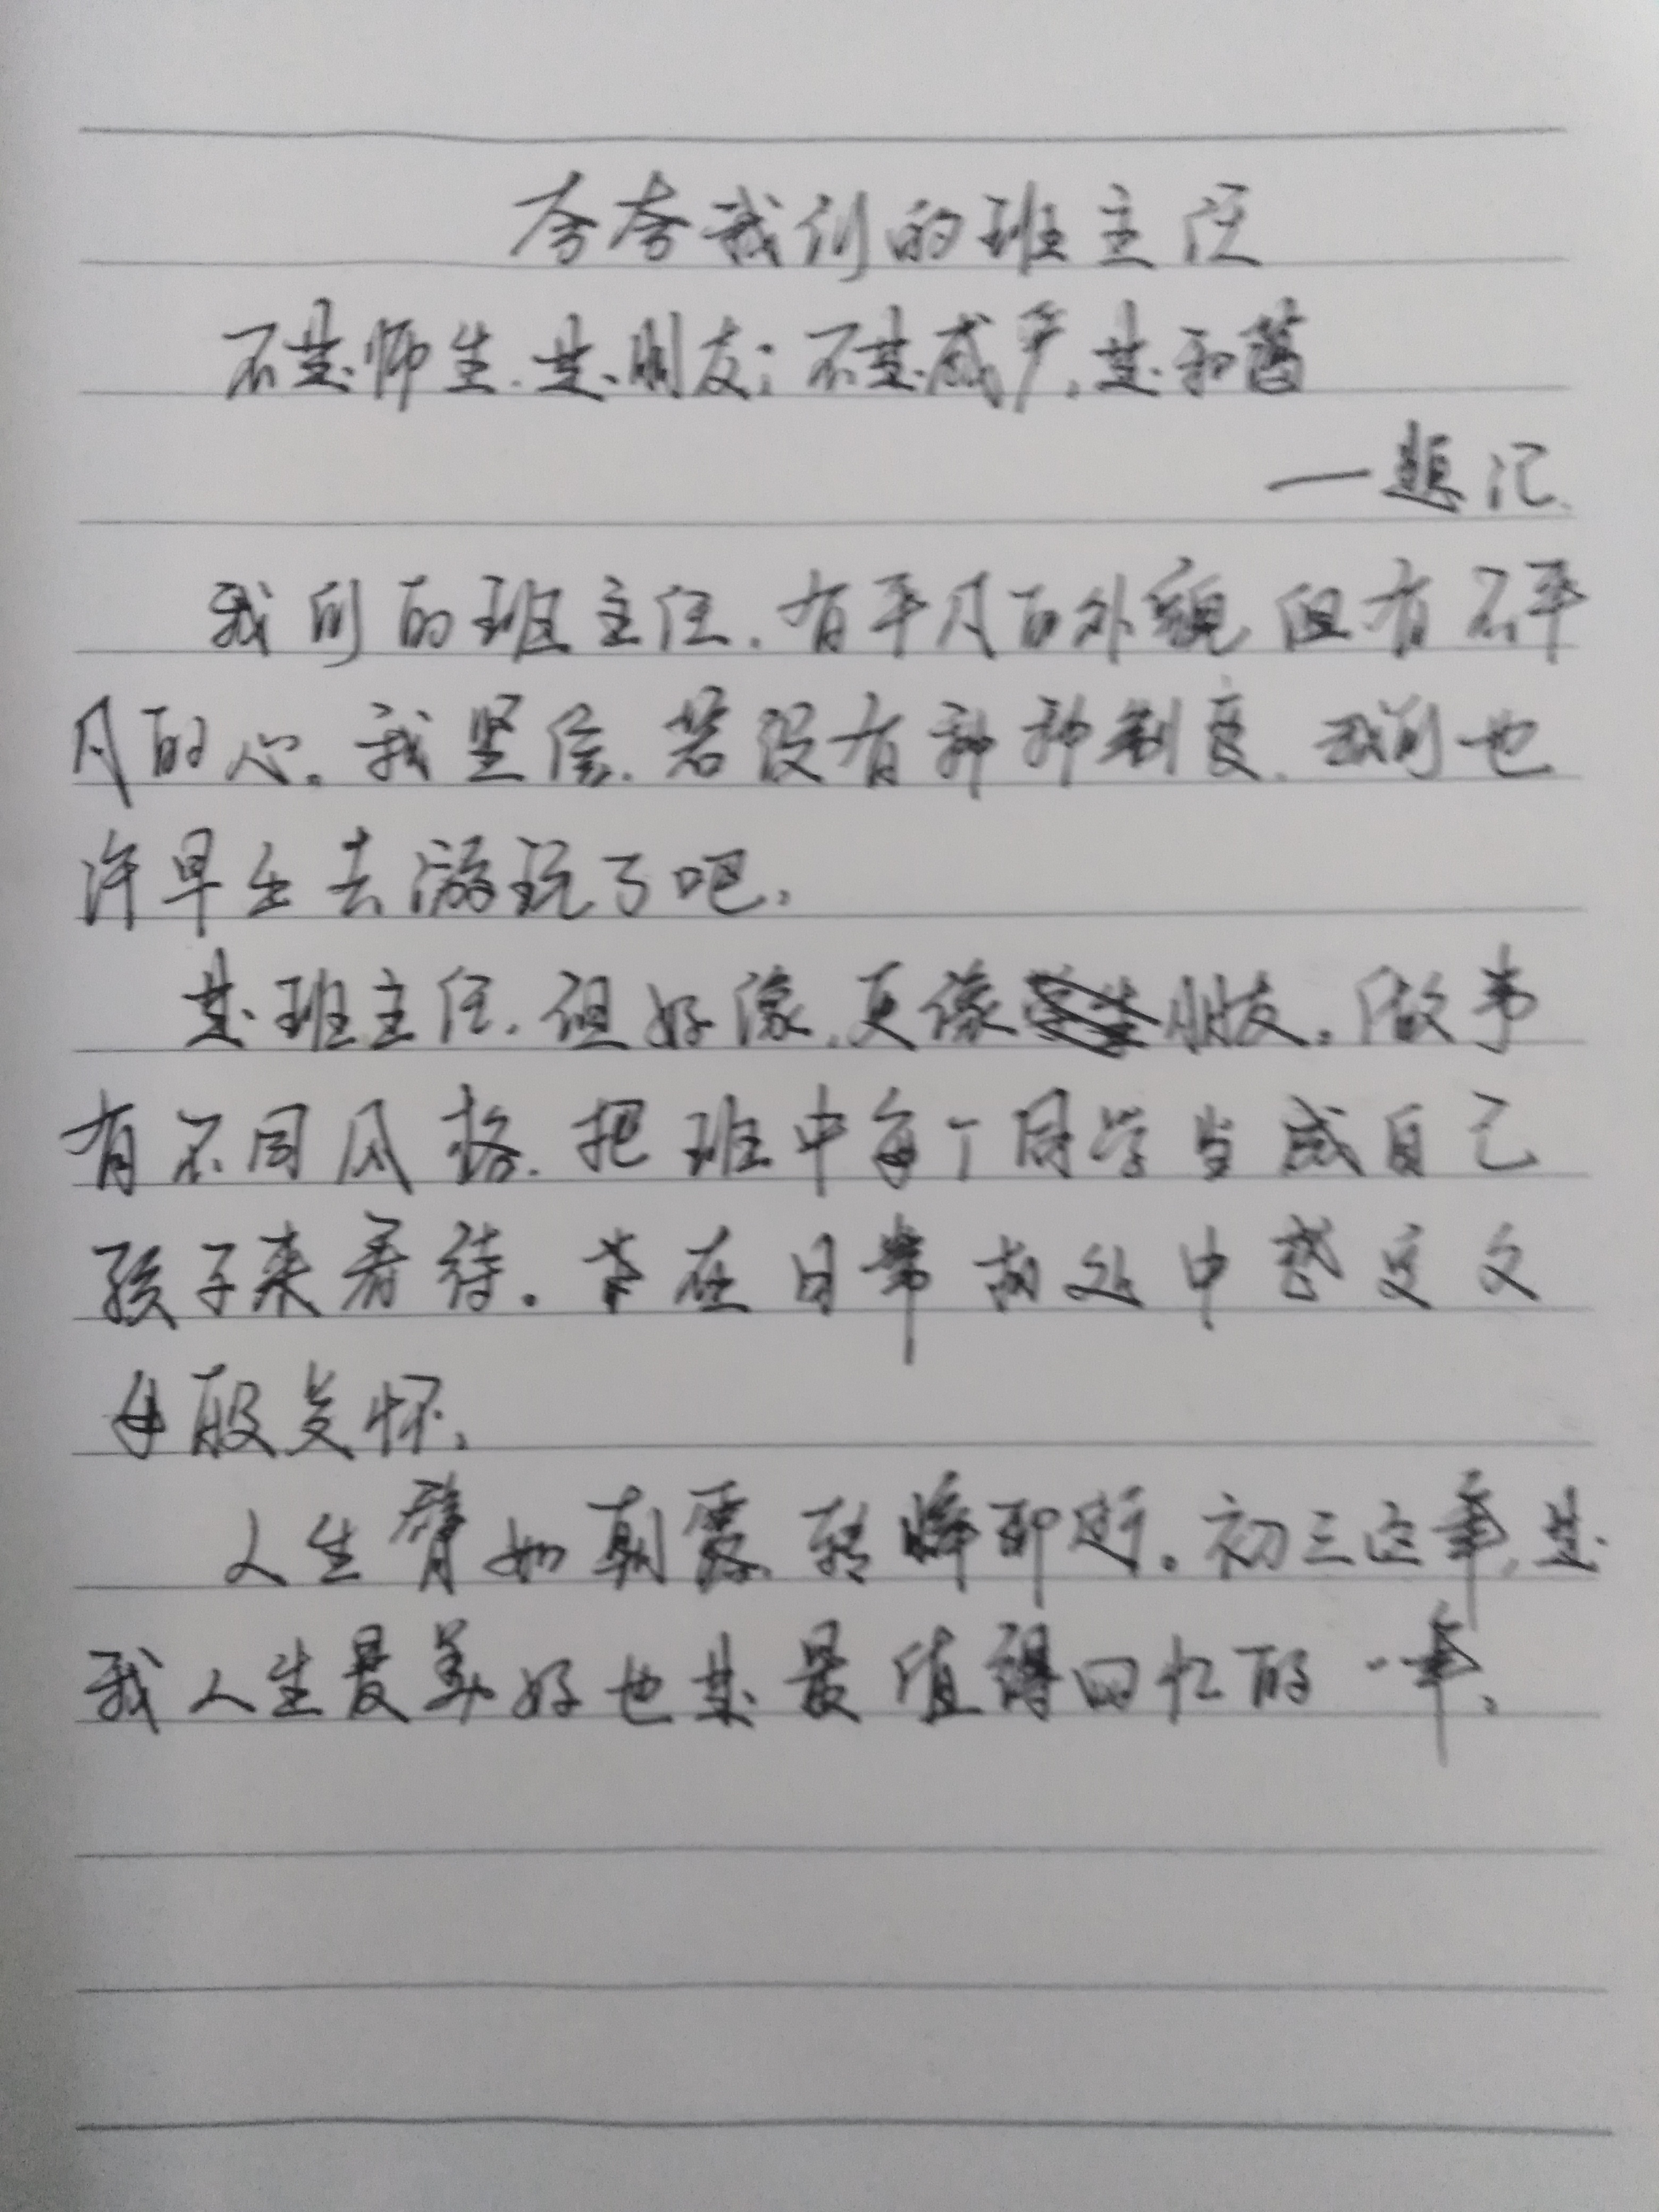 夸夸我们的班主任
不是师生,是朋友;不是威严,是和蔼
—题记
我们的班主任,有平凡的外貌,但有不平
凡的心。我坚信,若没有种种制度,我们也
许早出去游玩了吧。
是班主任,但好像,更像朋友。做事
有不同风格,把班中每个同学当成自己
孩子来看待。在日常相处中感受父
母般关怀。
人生譬如朝露,转瞬即逝。初三这年,是
我人生最美好也是最值得回忆的一年。